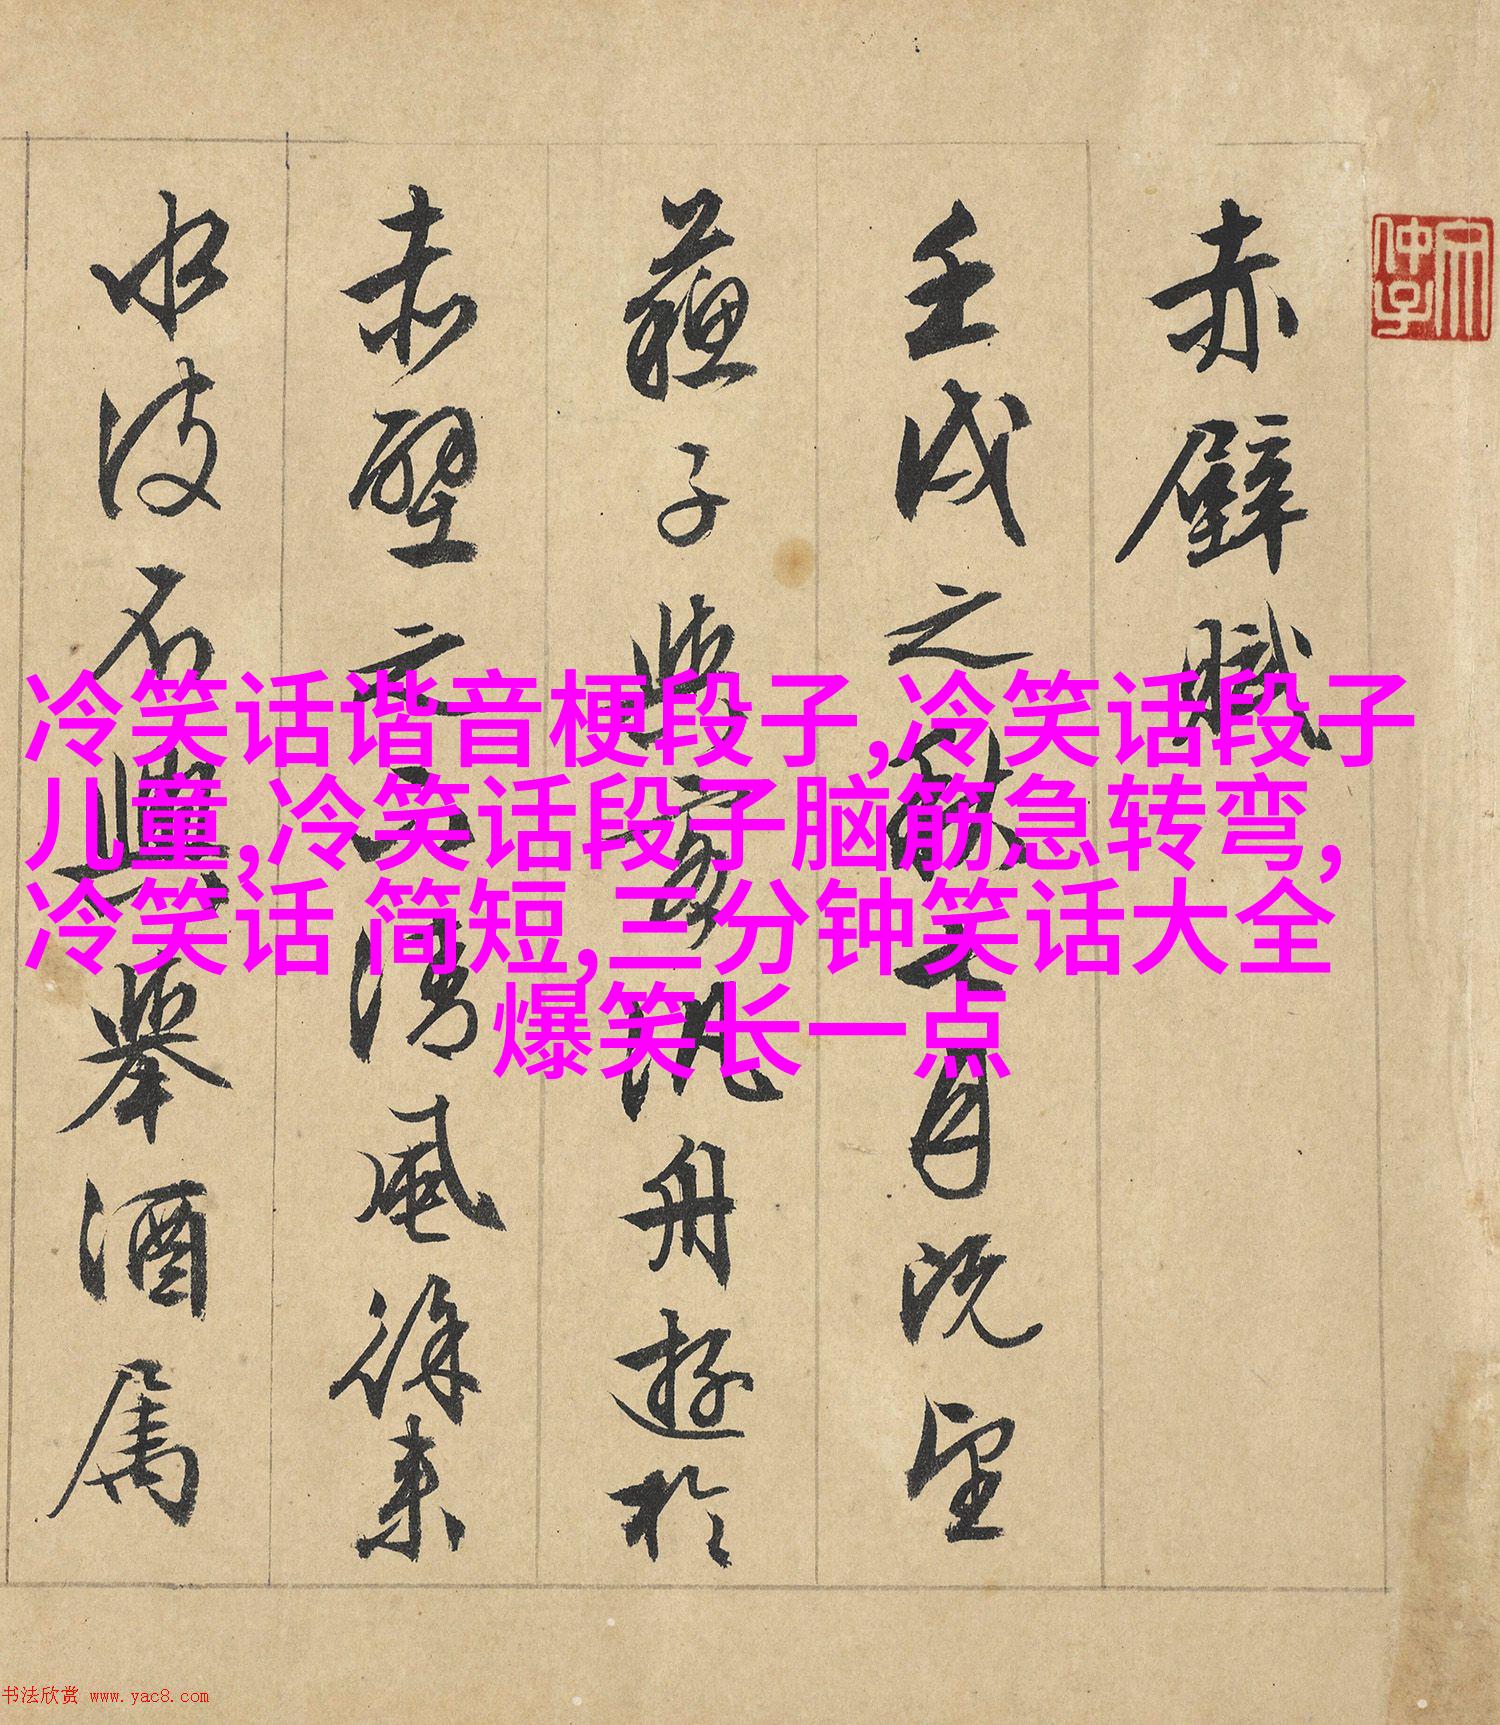 赤壁賦
壬戌之秋七月既望
蘇子與客汎舟遊於
赤壁之下清風徐來
水波不興舉酒屬
冷笑话谐音梗段子,冷笑话段子
儿童,冷笑话段子脑筋急转弯,
冷笑话 简短,三分钟笑话大全
爆笑长一点
书法欣赏 www.yac8.com